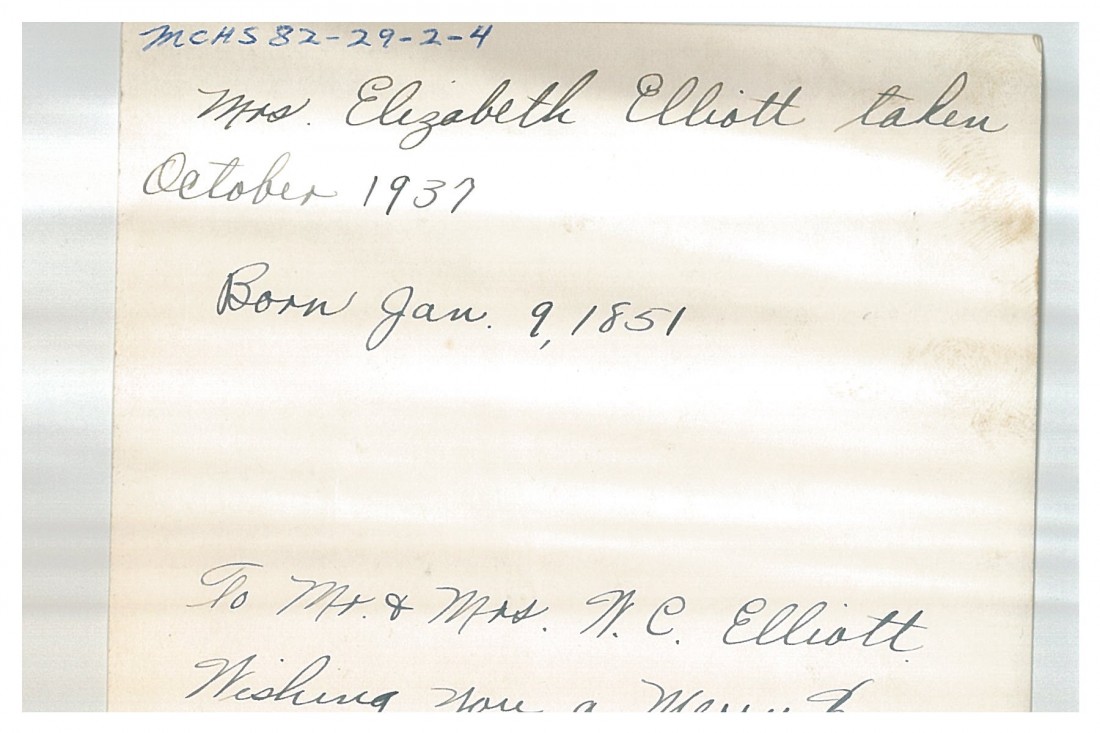 MCHS 82-29-2-4
Mrs. Elizabeth Elliott taken
October 1937
Born Jan. 9, 1851
To Mr. & Mrs. W. C. Elliott
Wishing you a Merry